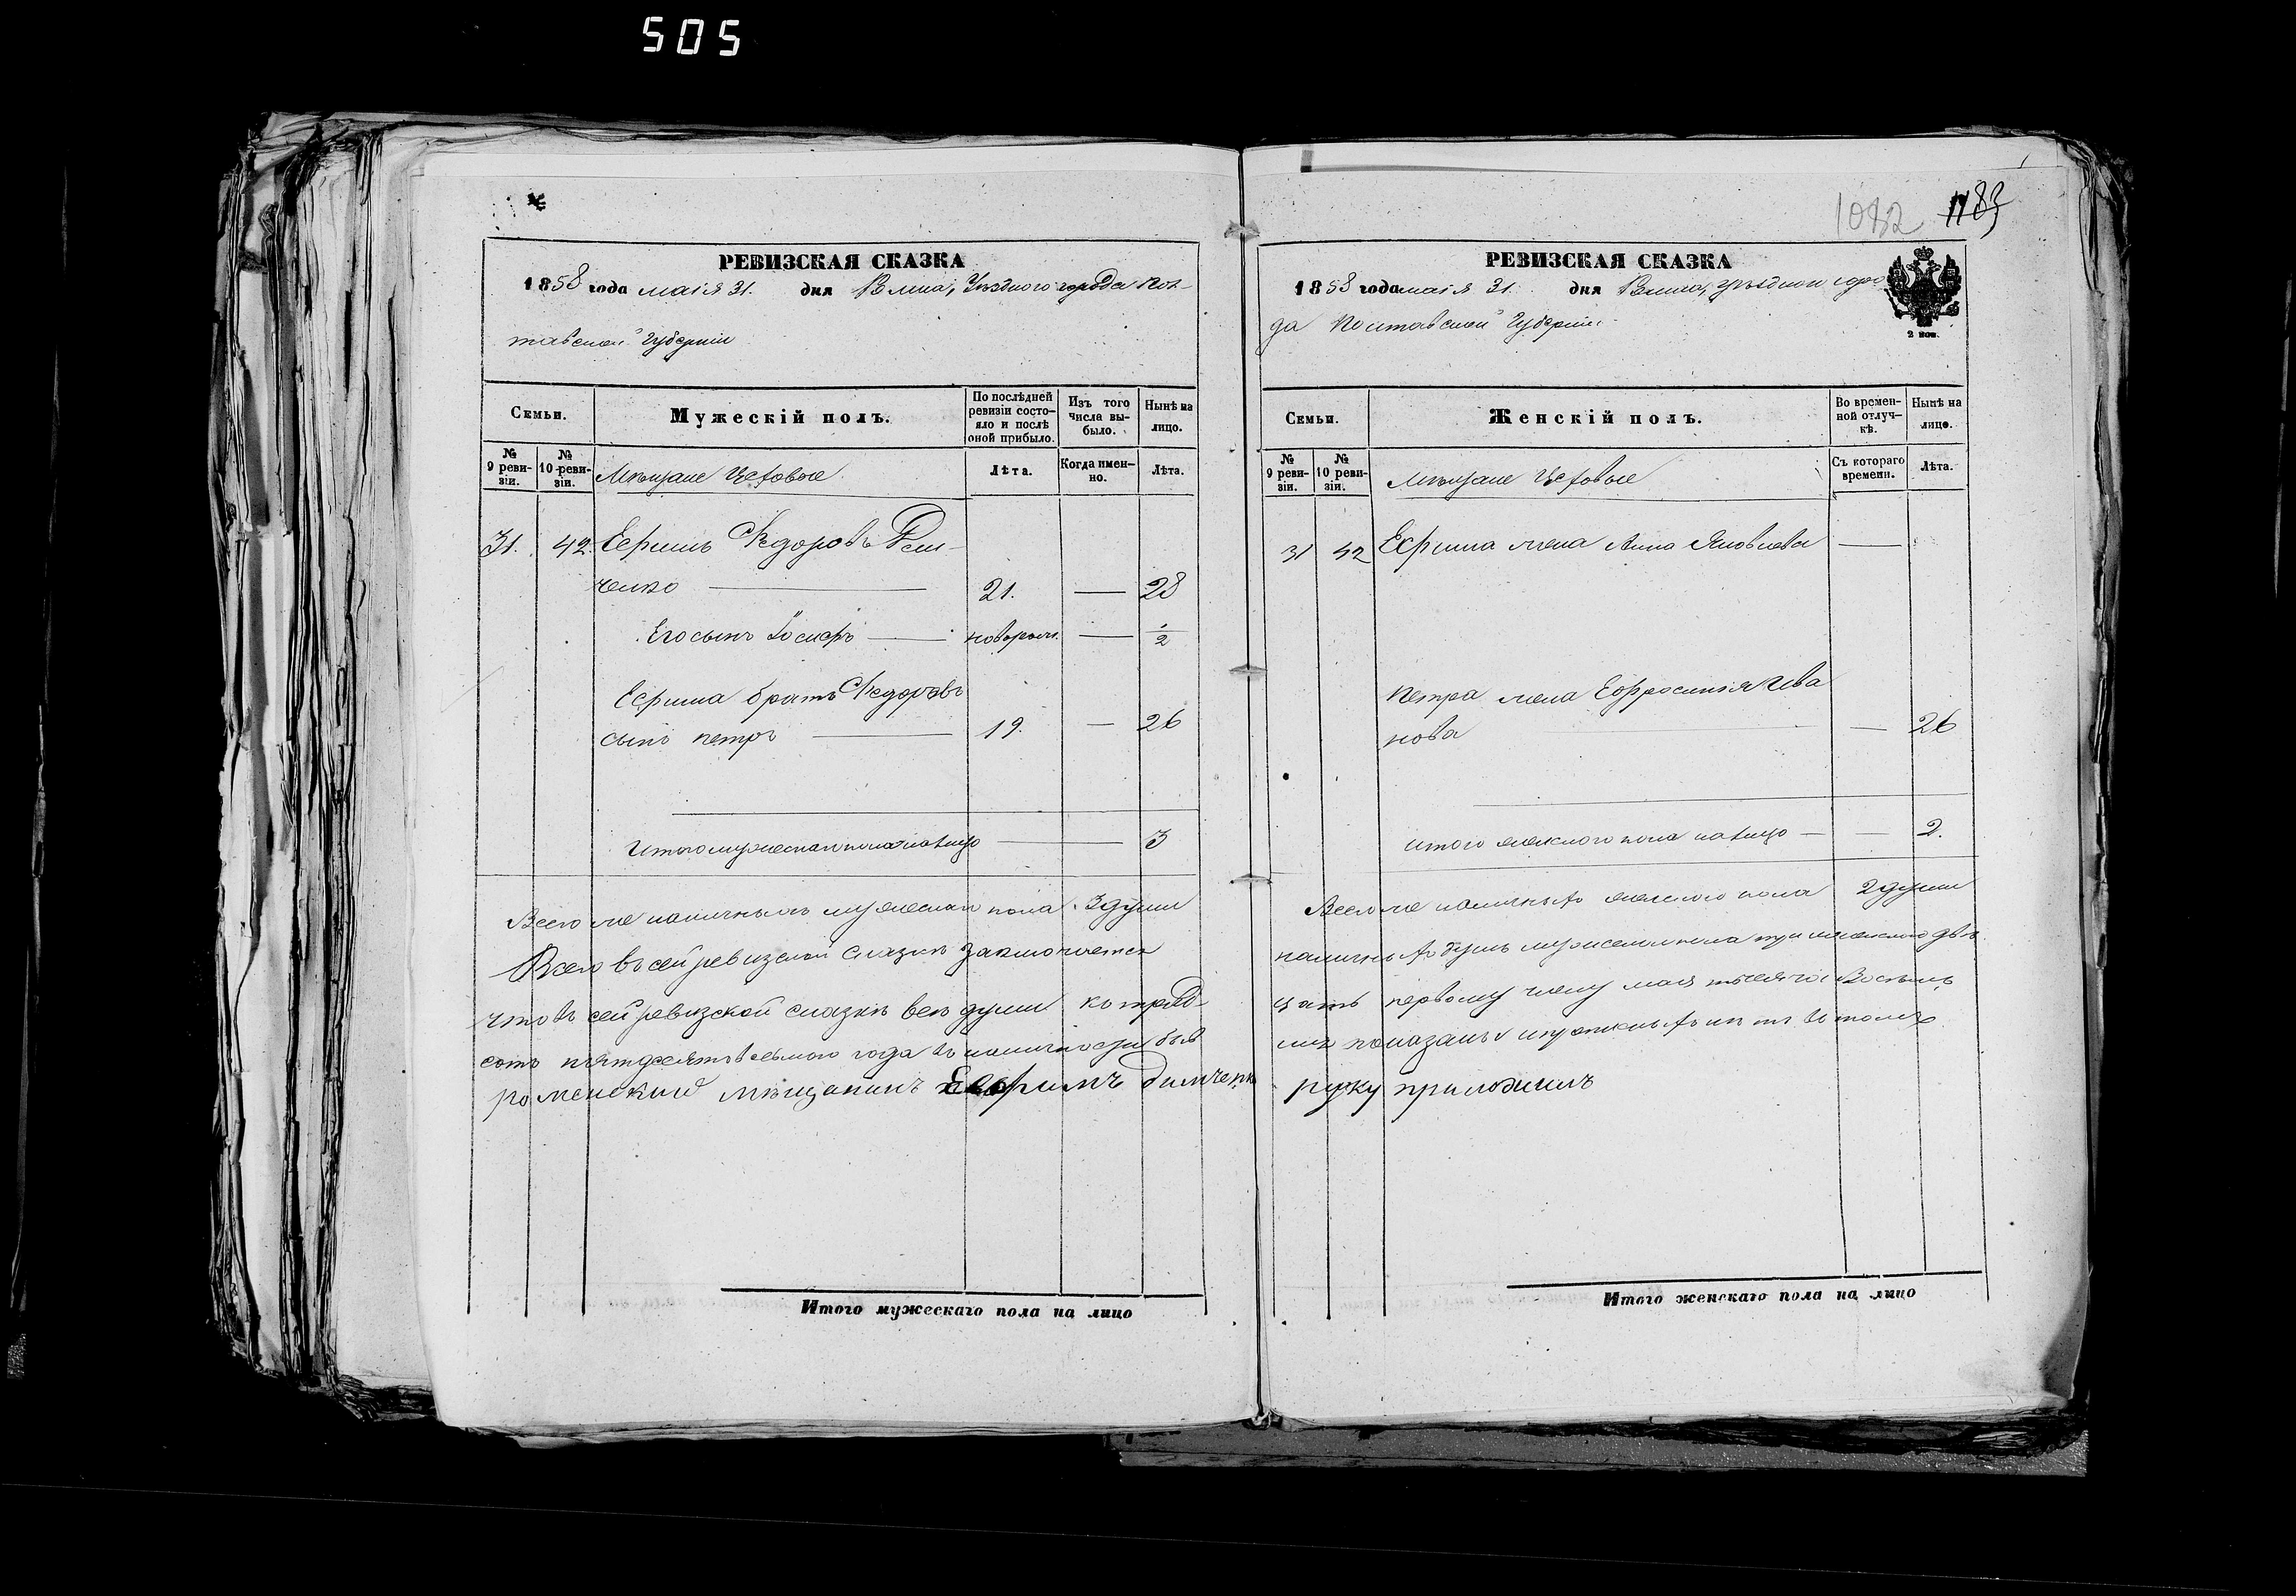 505
1082 1183
РЕВИЗСКАЯ СКАЗКА
1858 года маія 31. дня Уѣзднаго города Пол-
тавской Губерніи
Семьи.
Мужескій полъ.
По послѣдней ревизіи состояло и послѣ оной прибыло.
Изъ того числа выбыло.
Нынѣ на лицо.
№ 9 ревизіи.
№ 10 ревизіи.
Мѣщане Цеховые
Лѣта.
Когда именно.
Лѣта.
31. 42. Ефимъ Федоровъ Дем-
ченко 21. — 28
Его сынъ Іосифъ новорож. — 1/2
Ефима братъ Федоровъ
сынъ Петръ 19. — 26
Итого мужескаго пола на лицо — 3
Всего же наличныхъ мужескаго пола 3 души
Всего въ сей ревизской сказкѣ заключается
что въ сей ревизской сказкѣ всѣ души къ тред-
сотъ пятдесятъ осьмого года въ наличности быв
роменский мещанинъ Ефимъ Димченко
Итого мужескаго пола на лицо
РЕВИЗСКАЯ СКАЗКА
1858 года маія 31. дня уѣзднаго горо-
да Полтавской Губерніи
2 коп.
Семьи.
Женскій полъ.
Во временной отлучкѣ.
Нынѣ на лицо.
№ 9 ревизіи.
№ 10 ревизіи.
Мѣщане Цеховые
Съ котораго времени.
Лѣта.
31 42 Ефима жена Анна Яковлева —
Петра жена Ефросинія Ива
нова — 26
Итого женскаго пола на лицо — — 2.
Всего же наличныхъ женскаго пола 2 души
наличныхъ душъ мужескаго пола три и женскаго двѣ
цать первому числу мая тысяча Восемь
показаны и пропискныхъ нѣтъ въ томъ
руку приложилъ
Итого женскаго пола на лицо